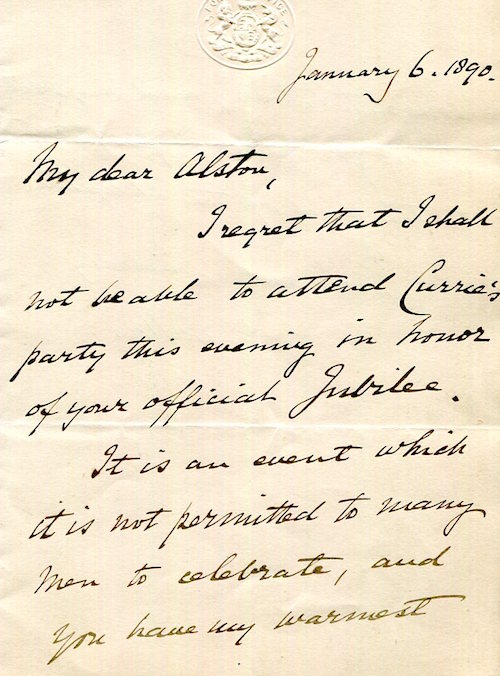 January 6. 1890.
My dear Alston,
I regret that I shall
not be able to attend Currie's
party this evening in honor
of your official Jubilee.
It is an event which
it is not permitted to many
men to celebrate, and
you have my warmest